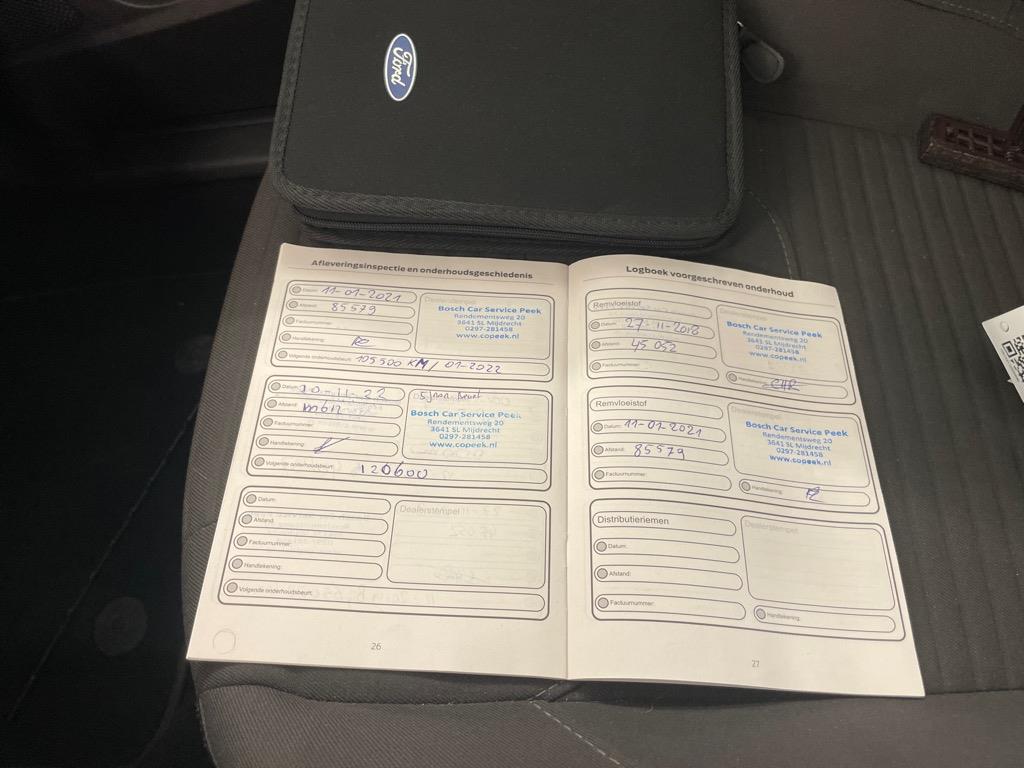 Ford
Afleveringsinspectie en onderhoudsgeschiedenis
Datum: 11-01-2021
Afstand: 85579
Factuurnummer:
Handtekening:
Volgende onderhoudsbeurt: 105500 KM / 01-2022
Dealerstempel
Bosch Car Service Peek
Rendementsweg 20
3641 SL Mijdrecht
0297-281458
www.copeek.nl
Datum: 10-11-22
Afstand:
Factuurnummer:
Handtekening:
Volgende onderhoudsbeurt: 120600
5 jaar beurt
Bosch Car Service Peek
Rendementsweg 20
3641 SL Mijdrecht
0297-281458
www.copeek.nl
Datum:
Afstand:
Factuurnummer:
Handtekening:
Volgende onderhoudsbeurt:
Dealerstempel
26
Logboek voorgeschreven onderhoud
Remvloeistof
Datum: 27-11-2018
Afstand: 45 052
Factuurnummer:
Dealerstempel
Bosch Car Service Peek
Rendementsweg 20
3641 SL Mijdrecht
0297-281458
www.copeek.nl
Handtekening:
Remvloeistof
Datum: 11-01-2021
Afstand: 85579
Factuurnummer:
Dealerstempel
Bosch Car Service Peek
Rendementsweg 20
3641 SL Mijdrecht
0297-281458
www.copeek.nl
Handtekening:
Distributieriemen
Datum:
Afstand:
Factuurnummer:
Dealerstempel
Handtekening:
27